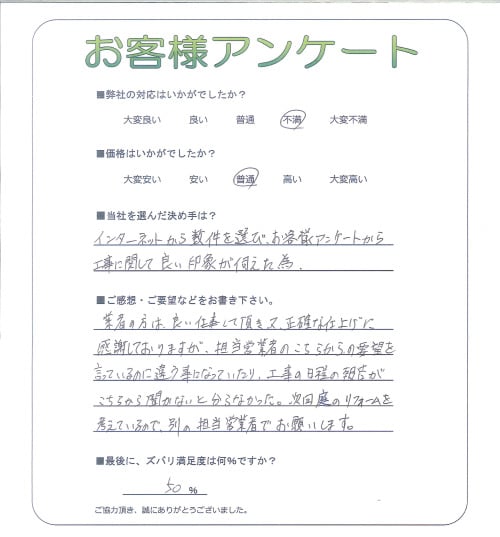 お客様アンケート
■弊社の対応はいかがでしたか？
大変良い 良い 普通 不満 大変不満
■価格はいかがでしたか？
大変安い 安い 普通 高い 大変高い
■当社を選んだ決め手は？
インターネットから数件を選び、お客様アンケートから
工事に関して良い印象が伺えた為。
■ご感想・ご要望などをお書き下さい。
業者の方は、良い仕事して頂き又、正確な仕上げに
感謝しておりますが、担当営業者のこちらからの要望を
言っているのに違う事になっていたり、工事の日程の報告が
こちらから聞かないと分らなかった。次回庭のリフォームを
考えているので、別の担当営業者でお願いします。
■最後に、ズバリ満足度は何％ですか？
50 %
ご協力頂き、誠にありがとうございました。